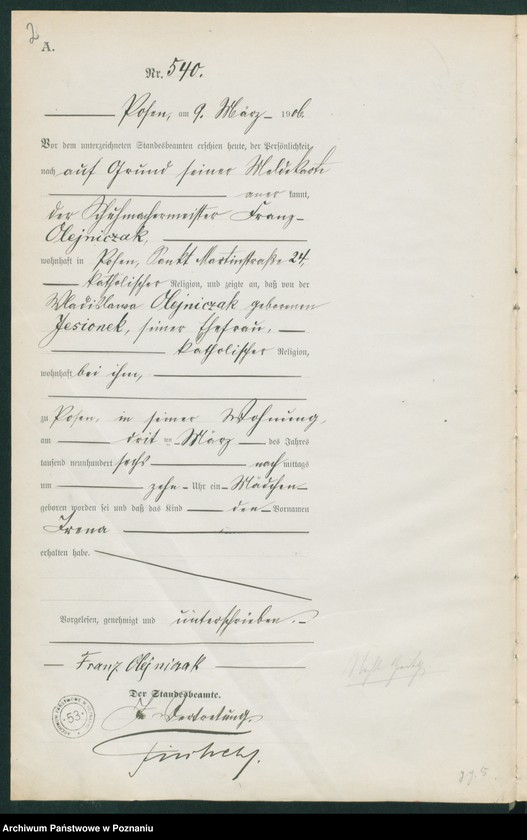 2
A.
Nr. 540.
Posen, am 9. März 1906.
Vor dem unterzeichneten Standesbeamten erschien heute, der Persönlichkeit
nach auf Grund seiner Meldekarte
aner kannt,
der Schuhmachermeister Franz
Olejniczak,
wohnhaft in Posen, Sankt Martinstraße 24,
katholischer Religion, und zeigte an, daß von der
Wladislawa Olejniczak geborenen
Jesionek, seiner Ehefrau,
katholischer Religion,
wohnhaft bei ihm,
zu Posen, in seiner Wohnung,
am drit ten März des Jahres
tausend neunhundert sechs nach mittags
um zehn Uhr ein Mädchen
geboren worden sei und daß das Kind den Vornamen
Irena
erhalten habe.
Vorgelesen, genehmigt und unterschrieben.
Franz Olejniczak
Der Standesbeamte.
In Vertretung
53
Archiwum Państwowe w Poznaniu